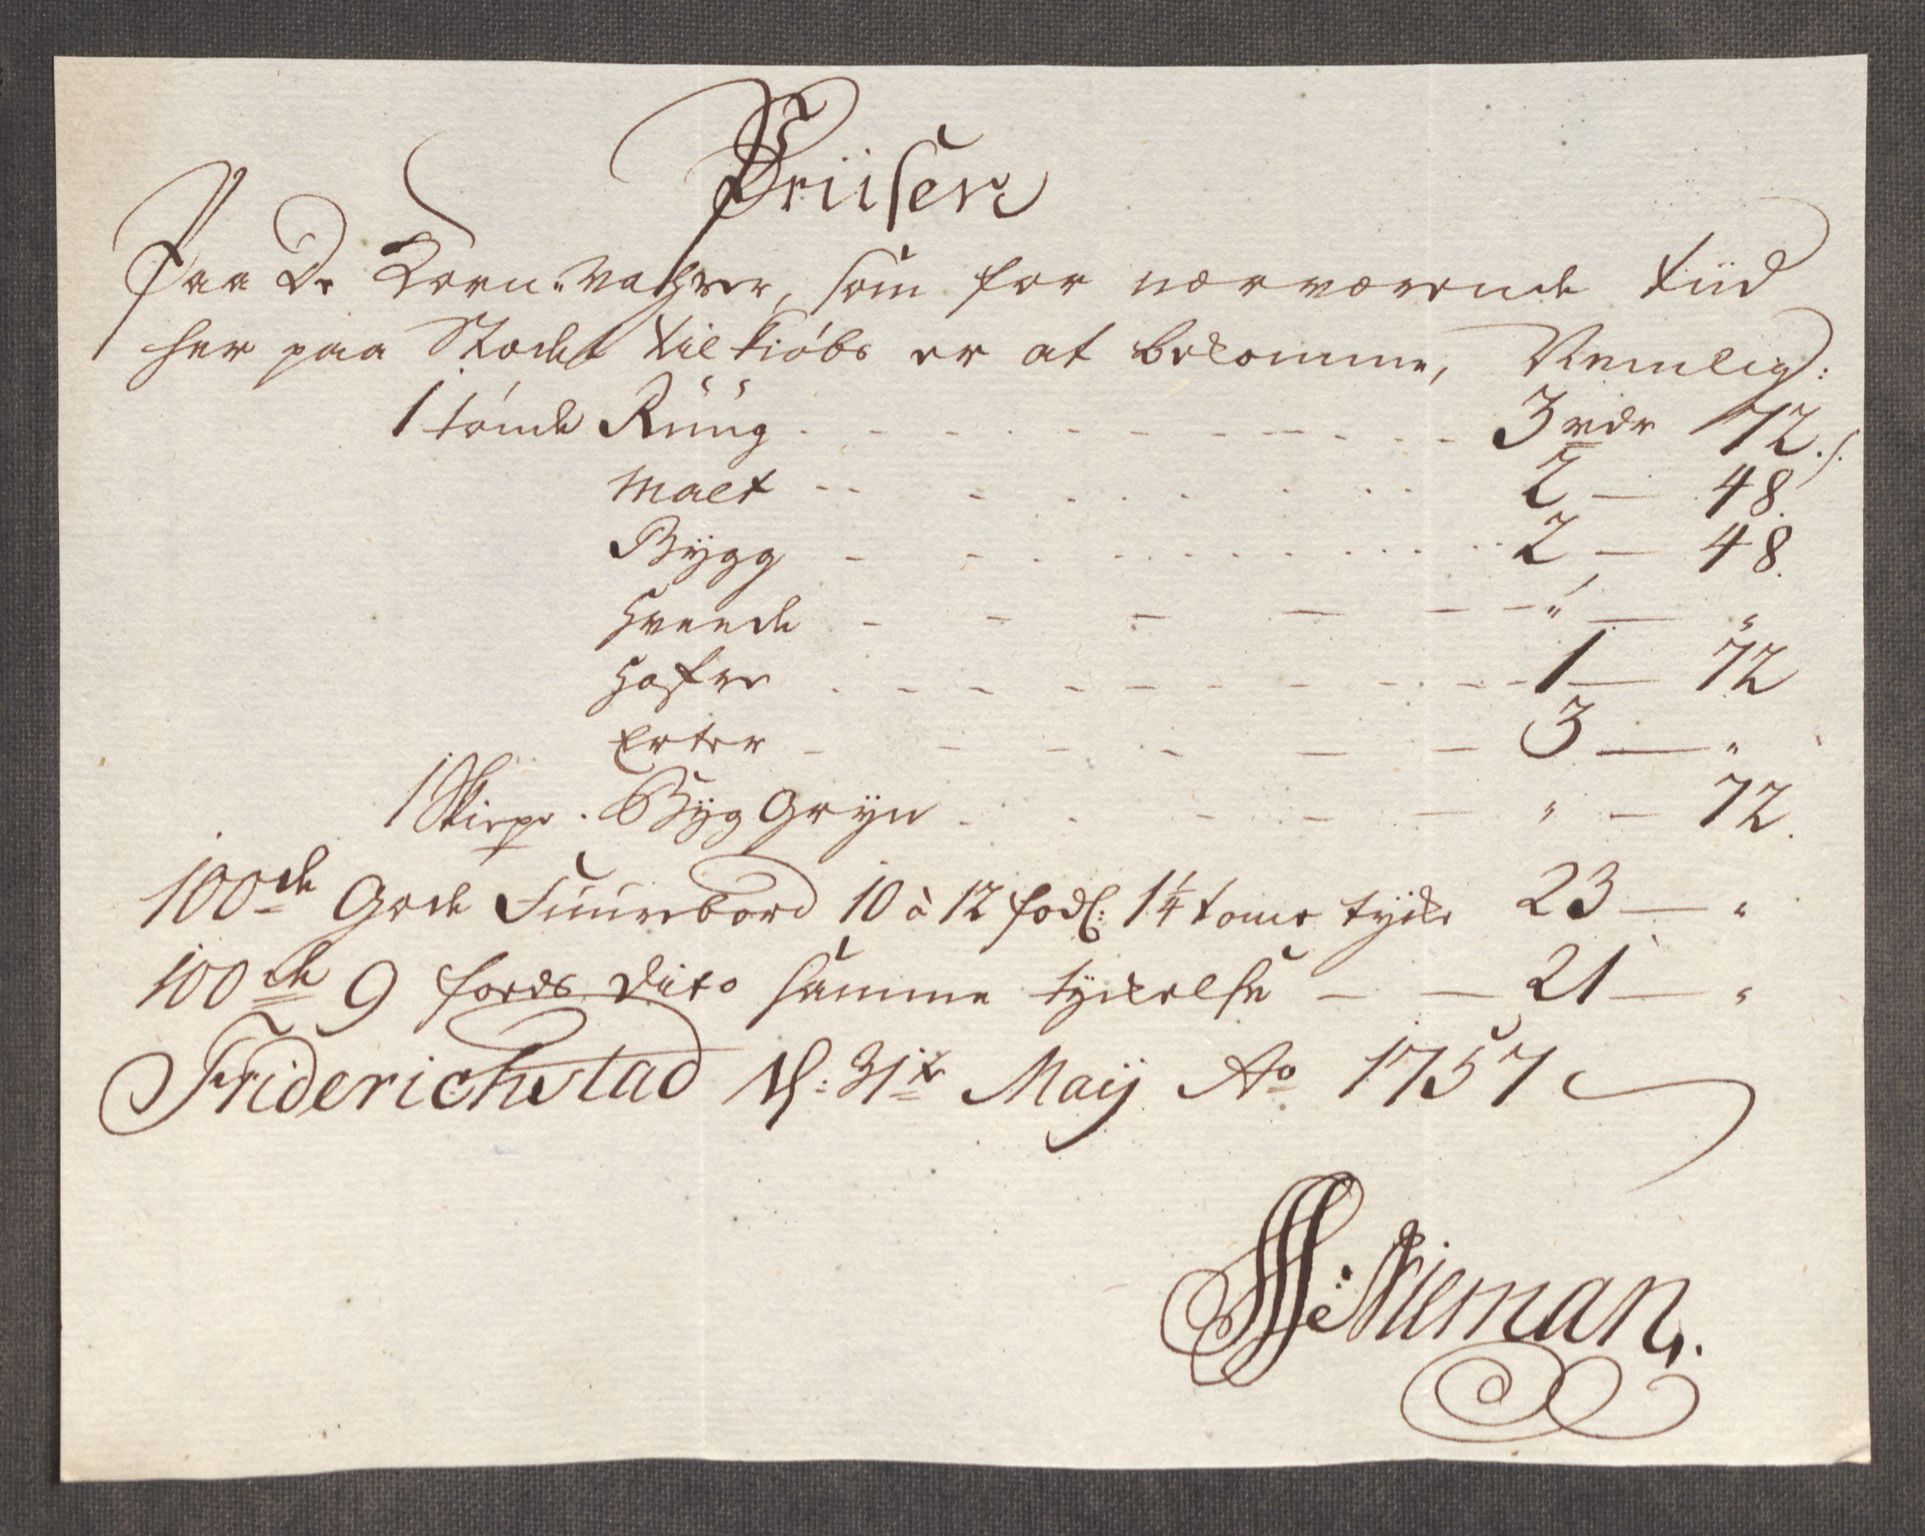 Priisen
Paa De Korn-Vahrer, som for nærværende tiid
her paa Stædet til kiøbs er at bekomme, Nemlig:
1 tønde Rüüg . - - - - - - - 3 rdr 72 s.
Malt - - - - - 2 — 48.
Bÿgg - - - - - 2 — 48.
Hveede - - - - - " — "
Hafre - - - - - 1 — 72
Erter - - - - - 3 — "
1 Skiepe . Bÿg Grÿn - - - - " — 72.
100de Gode Fuurebord 10 à 12 fods: 1¼ tome tycke 23 — "
100de 9 fods Dito samme tyckelse — — 21 — "
Friderichstad d: 31te Maij Ao 1757
Nieman.